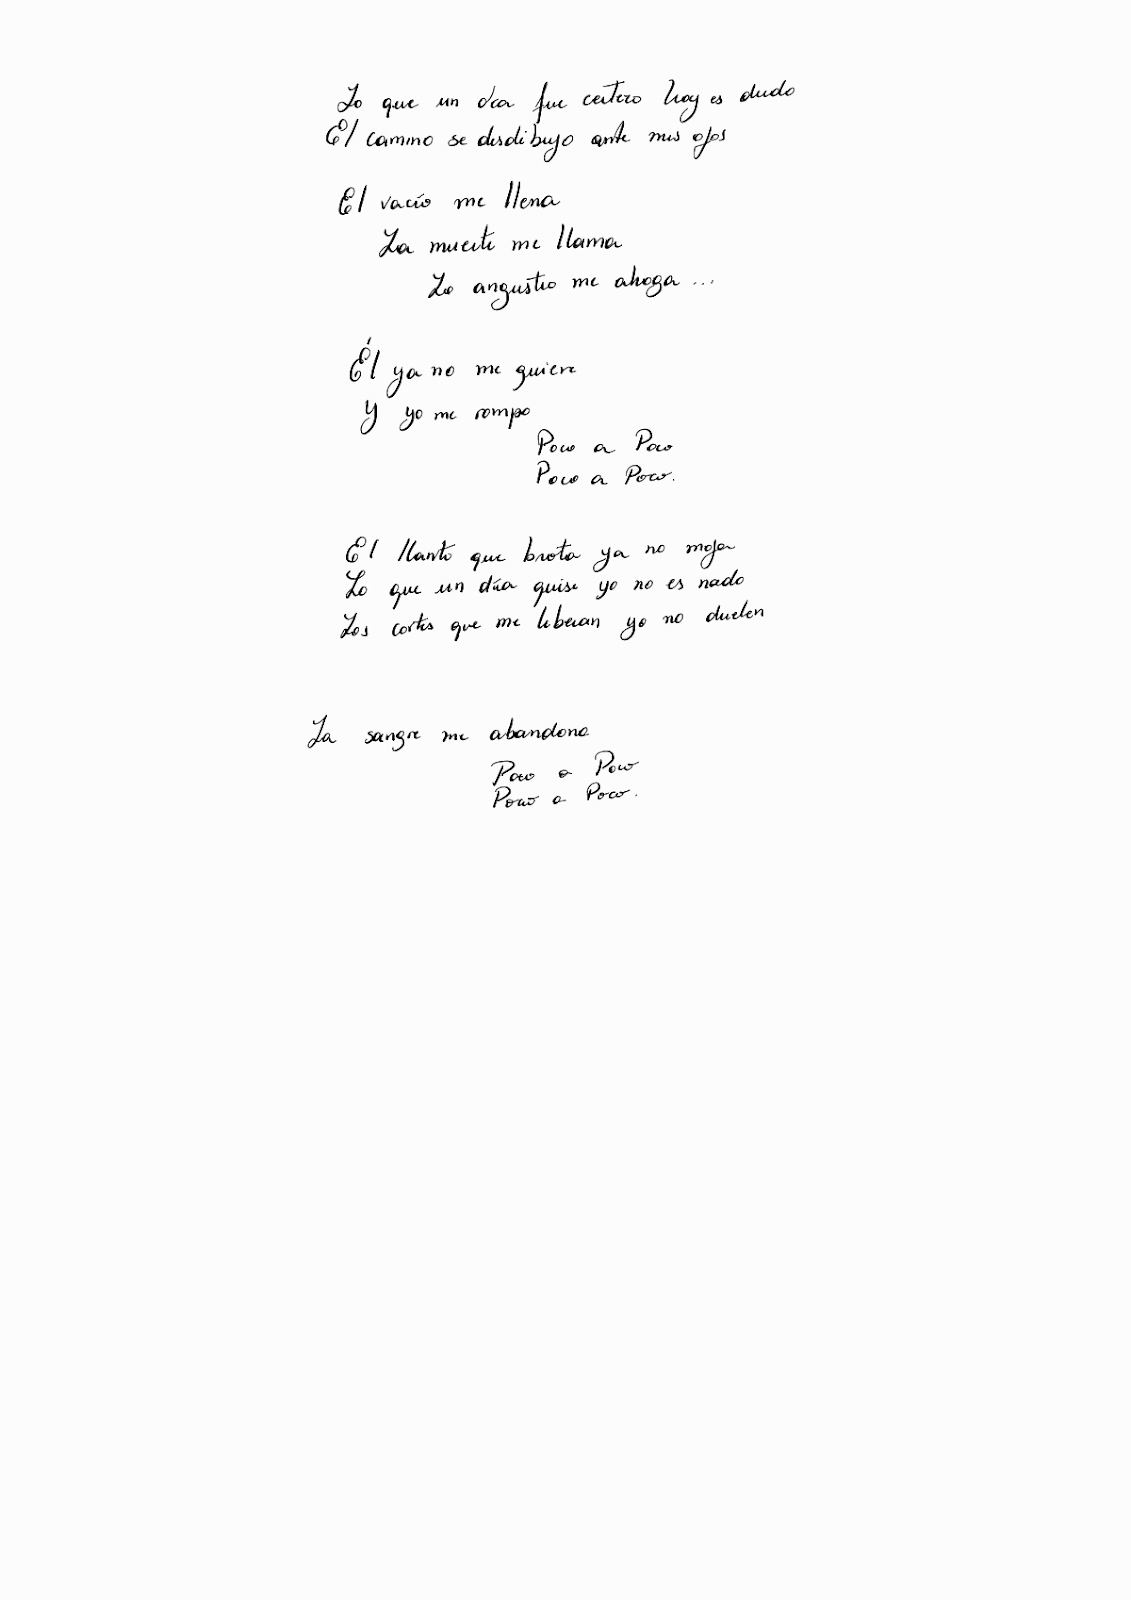 Lo que un día fue certero hoy es duda
El camino se desdibuja ante mis ojos
El vacío me llena
La muerte me llama
La angustia me ahoga ...
Él ya no me quiere
Y yo me rompo
Poco a Poco
Poco a Poco.
El llanto que brota ya no moja
Lo que un día quise ya no es nada
Los cortes que me liberan ya no duelen
La sangre me abandona
Poco a Poco
Poco a Poco.